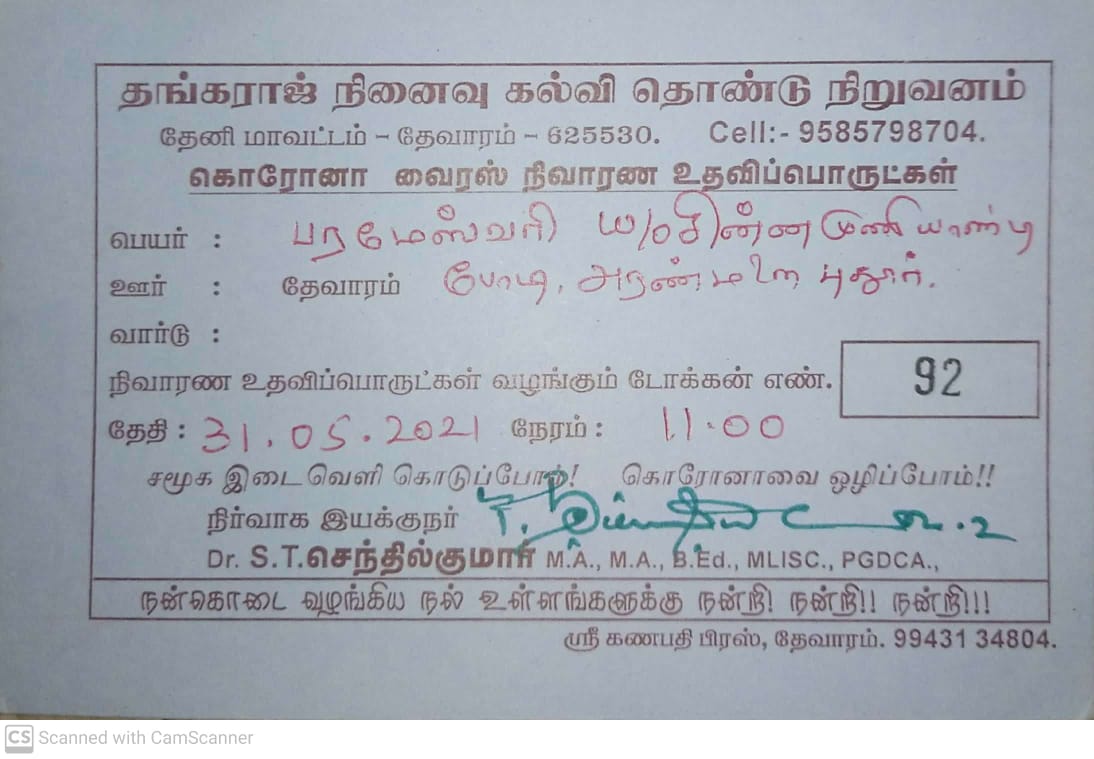 தங்கராஜ் நினைவு கல்வி தொண்டு நிறுவனம்
தேனி மாவட்டம் – தேவாரம் – 625530. Cell:- 9585798704.
கொரோனா வைரஸ் நிவாரண உதவிப்பொருட்கள்
பெயர் : பரமேஸ்வரி W/o சின்னமுனியாண்டி
ஊர் : தேவாரம் போடி, அரண்மனை புதூர்.
வார்டு :
நிவாரண உதவிப்பொருட்கள் வழங்கும் டோக்கன் எண். 92
தேதி : 31.05.2021 நேரம் : 11.00
சமூக இடைவெளி கொடுப்போம்! கொரோனாவை ஒழிப்போம்!!
நிர்வாக இயக்குநர்
Dr. S.T.செந்தில்குமார் M.A., M.A., B.Ed., MLISC., PGDCA.,
நன்கொடை வழங்கிய நல் உள்ளங்களுக்கு நன்றி! நன்றி!! நன்றி!!!
ஸ்ரீ கணபதி பிரஸ், தேவாரம். 99431 34804.
CS Scanned with CamScanner